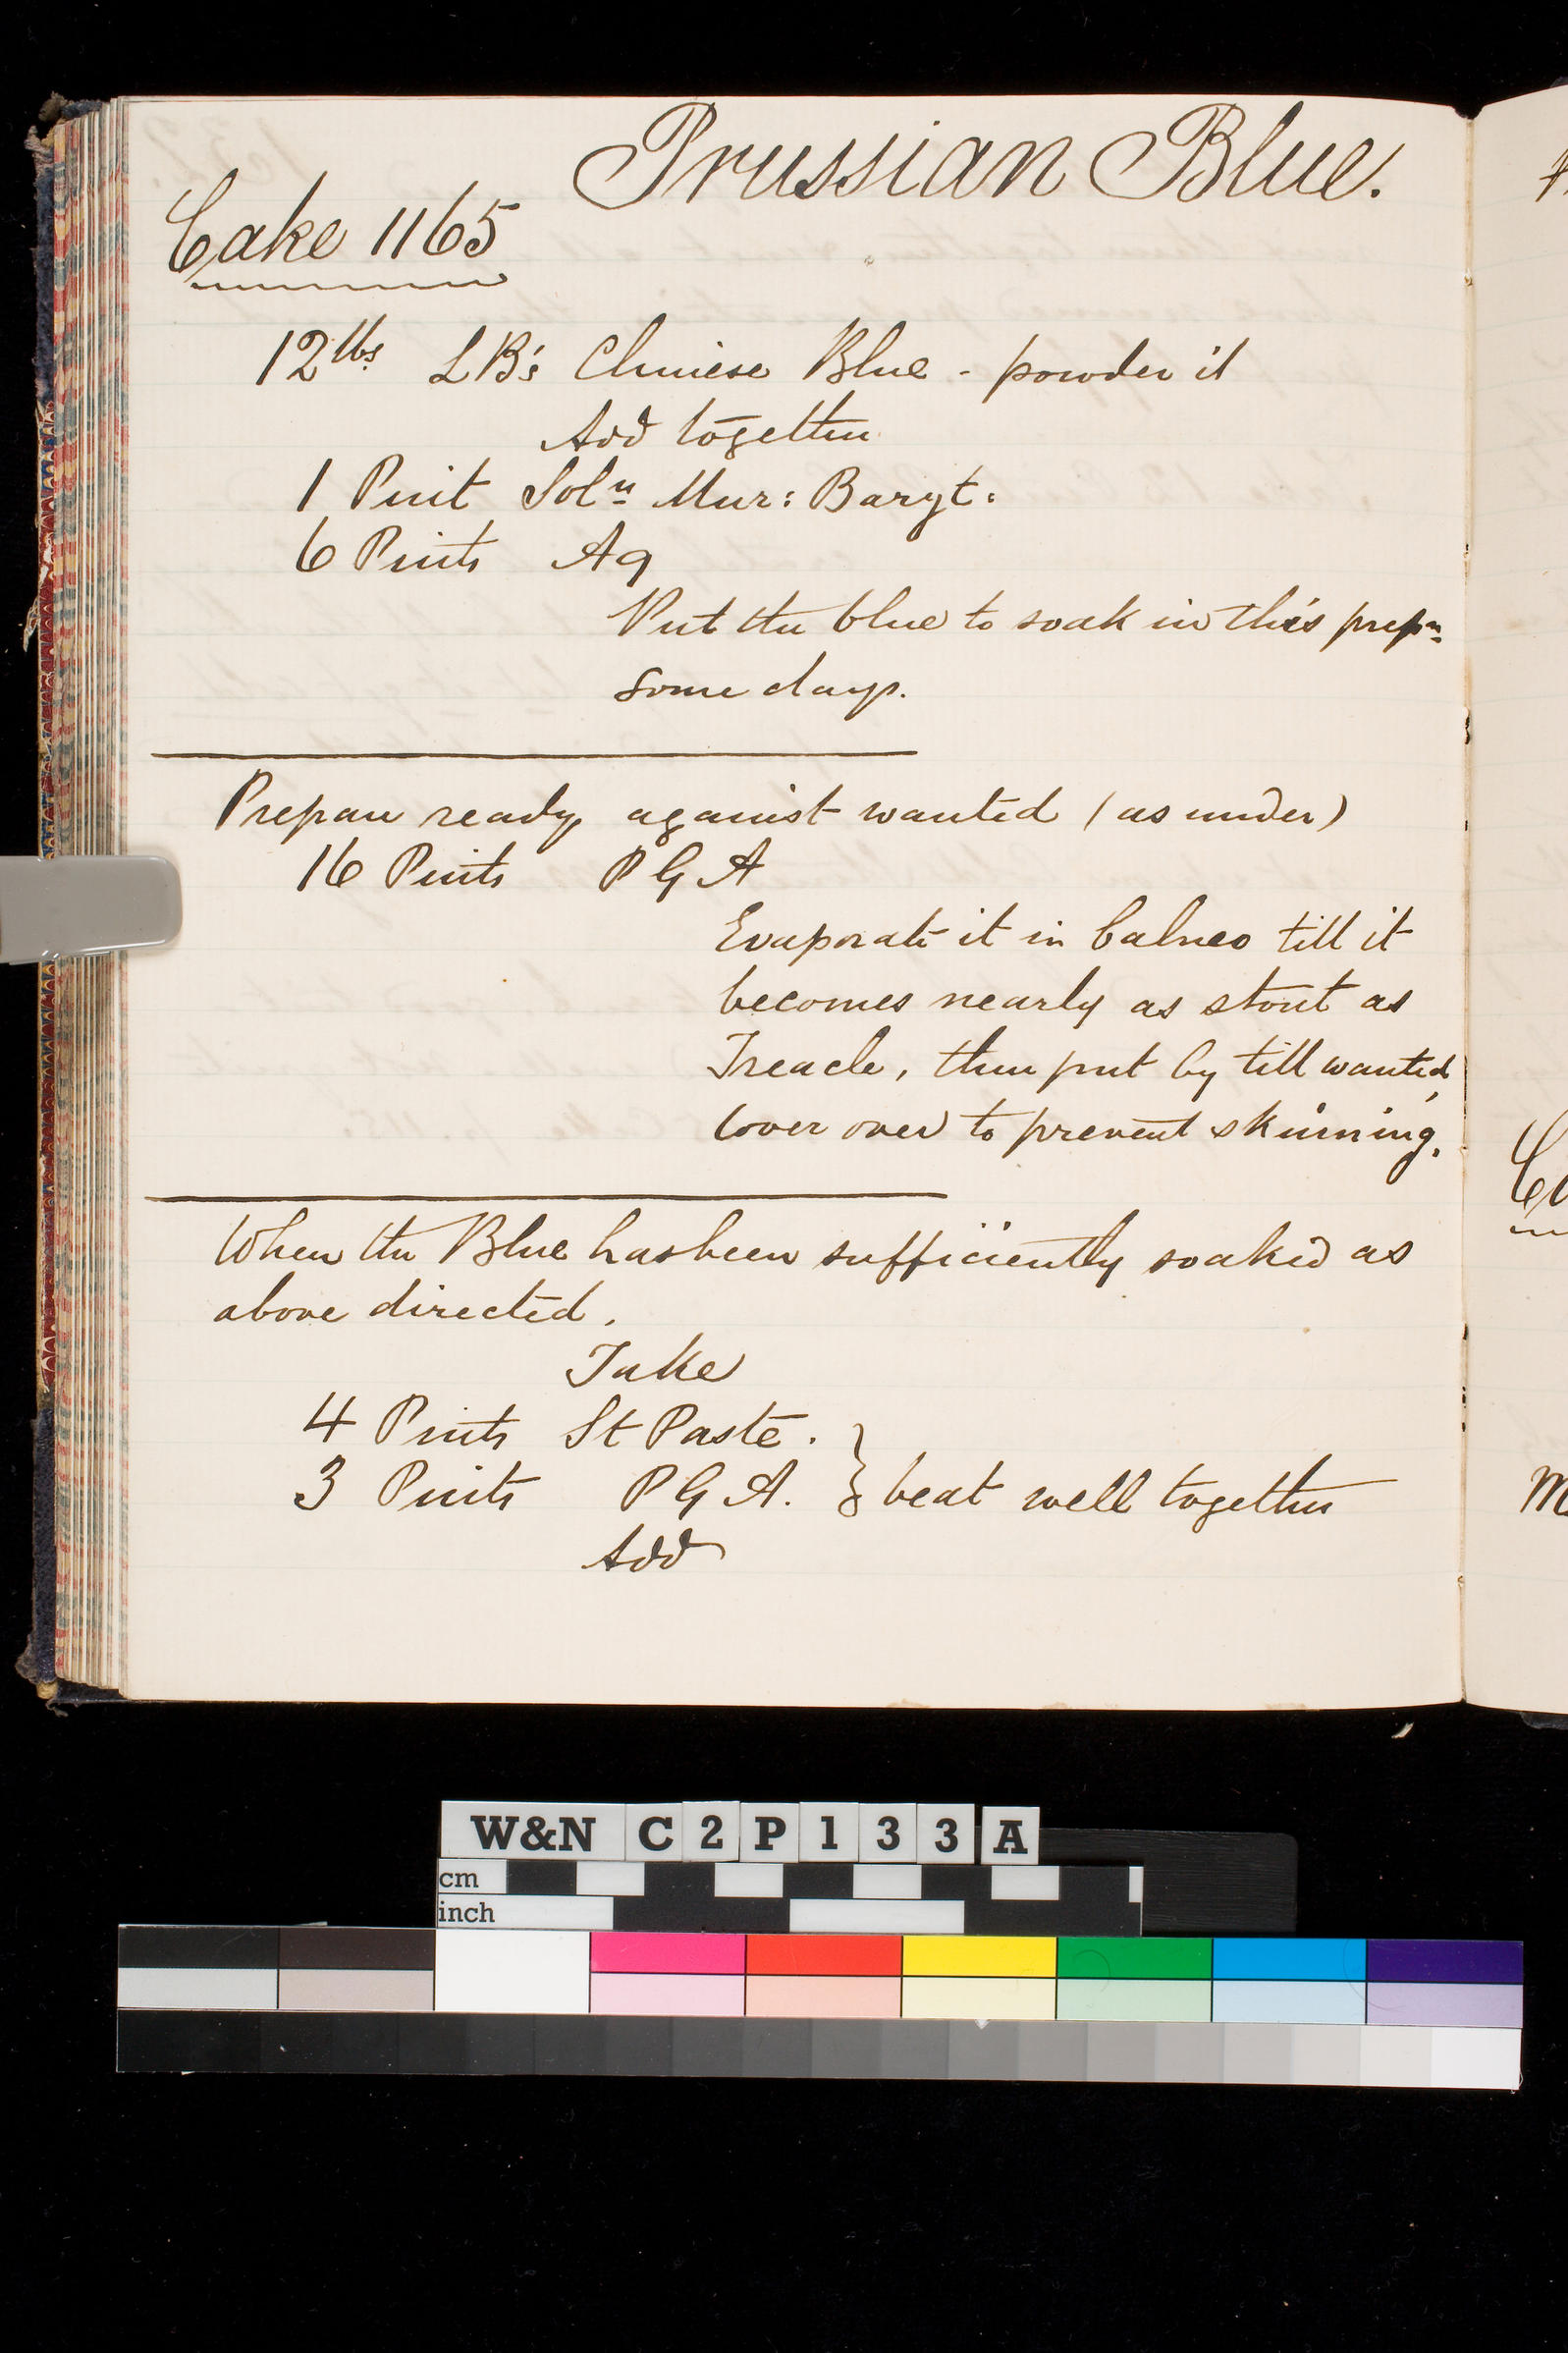 Prussian Blue.
Cake 1165
12 lbs L B's Chinese Blue - powder it
Add together
1 Pint Soln Mur: Baryt:
6 Pints Aq
Put the blue to soak in this prepn
some days.
Prepare ready against wanted (as under)
16 Pints P G A
Evaporate it in balneo till it
becomes nearly as stout as
Treacle, then put by till wanted,
Cover over to prevent skinning.
When the Blue has been sufficiently soaked as
above directed.
Take
4 Pints St Paste.
3 Pints P G A. } beat well together
Add
W&N C2P133A
cm
inch